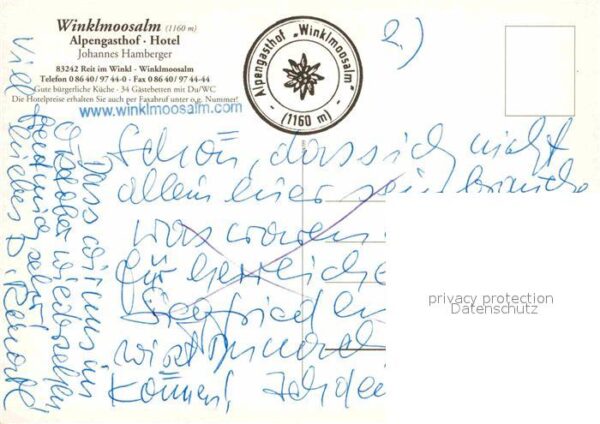 Winklmoosalm (1160 m)
Alpengasthof · Hotel
Johannes Hamberger
83242 Reit im Winkl · Winklmoosalm
Telefon 0 86 40 / 97 44-0 · Fax 0 86 40 / 97 44-44
Gute bürgerliche Küche · 34 Gästebetten mit Du/WC
Die Hotelpreise erhalten Sie auch per Faxabruf unter o.g. Nummer!
www.winklmoosalm.com
Alpengasthof „Winklmoosalm"
- (1160 m) -
2.)
Schön, dass ich nicht
allein hier sein
was waren
für herrliche
Siegfried
wirst
können! Ich
Dass wir uns im
Oktober wiedersehen
freut mich sehr!
Viel
privacy protection
Datenschutz